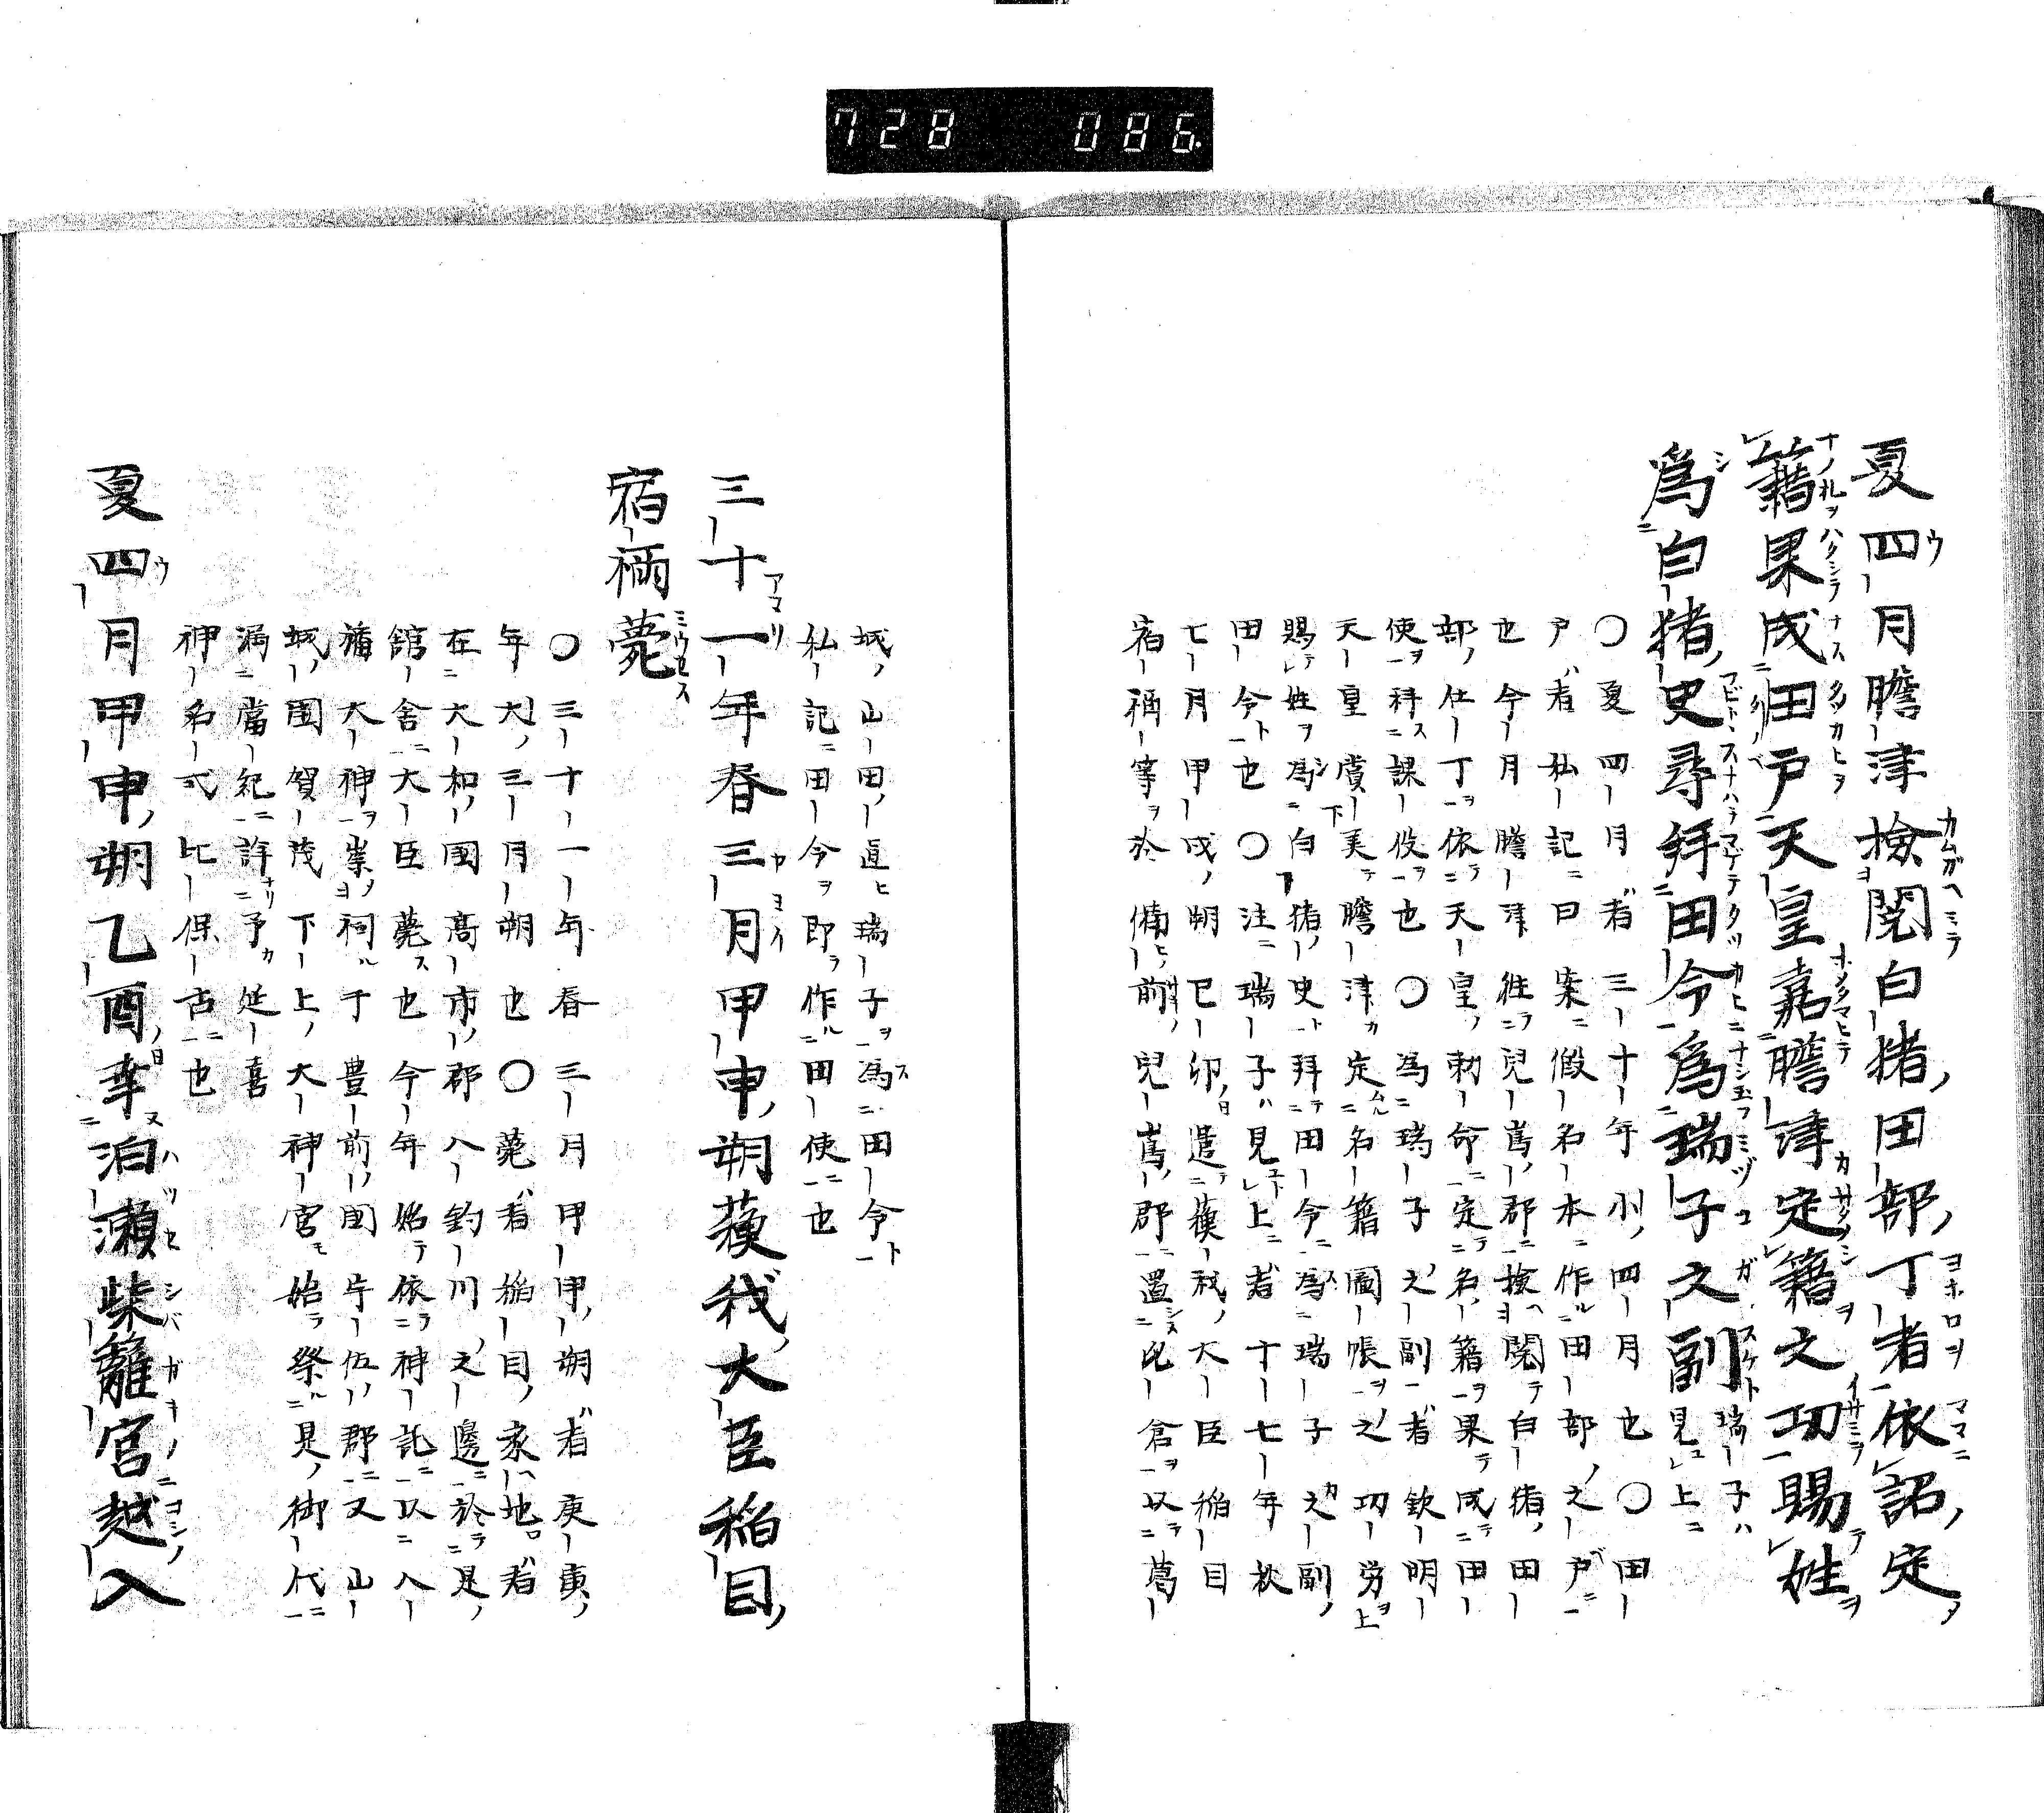 728 086
夏四月膽津撿閱白猪田部丁者依詔定
籍果成田戸天皇嘉膽津定籍之功賜姓
爲白猪史尋拜田令爲瑞子之副 瑞子ハ見上ニ
〇夏四月者三十年小四月也〇田
戸者私記曰案假名本作田部之戸
也今月膽津往兒嶌郡撿閱白猪田
部仕丁依天皇勅命定名籍果成田
使科課役也〇為瑞子之副者欽明
天皇賞美膽津カ定名籍圖帳之功労
賜姓為白猪史拜田令為瑞子カ之副
田令也〇注瑞子ハ見上者十七年秋
七月甲戌朔已卯日遣蘓我大臣稲目
宿祢等於備前兒嶌郡置屯倉以葛
城山田直瑞子為田令
私記田今即作田使也
三十一年春三月甲申朔蘓我大臣稲目
宿祢薨
〇三十一年春三月甲申朔者庚寅
年大三月朔也〇薨者稲目家地者
在大和國高市郡八釣川之邊於是
館舎大臣薨也今年始依神託以八
幡大神崇祠于豊前國宇佐郡又山
城國賀茂下上大神宮モ始祭是御代
満當紀許予カ延喜
神名式比保古也
夏四月甲申朔乙酉幸泊瀬柴籬宮越入